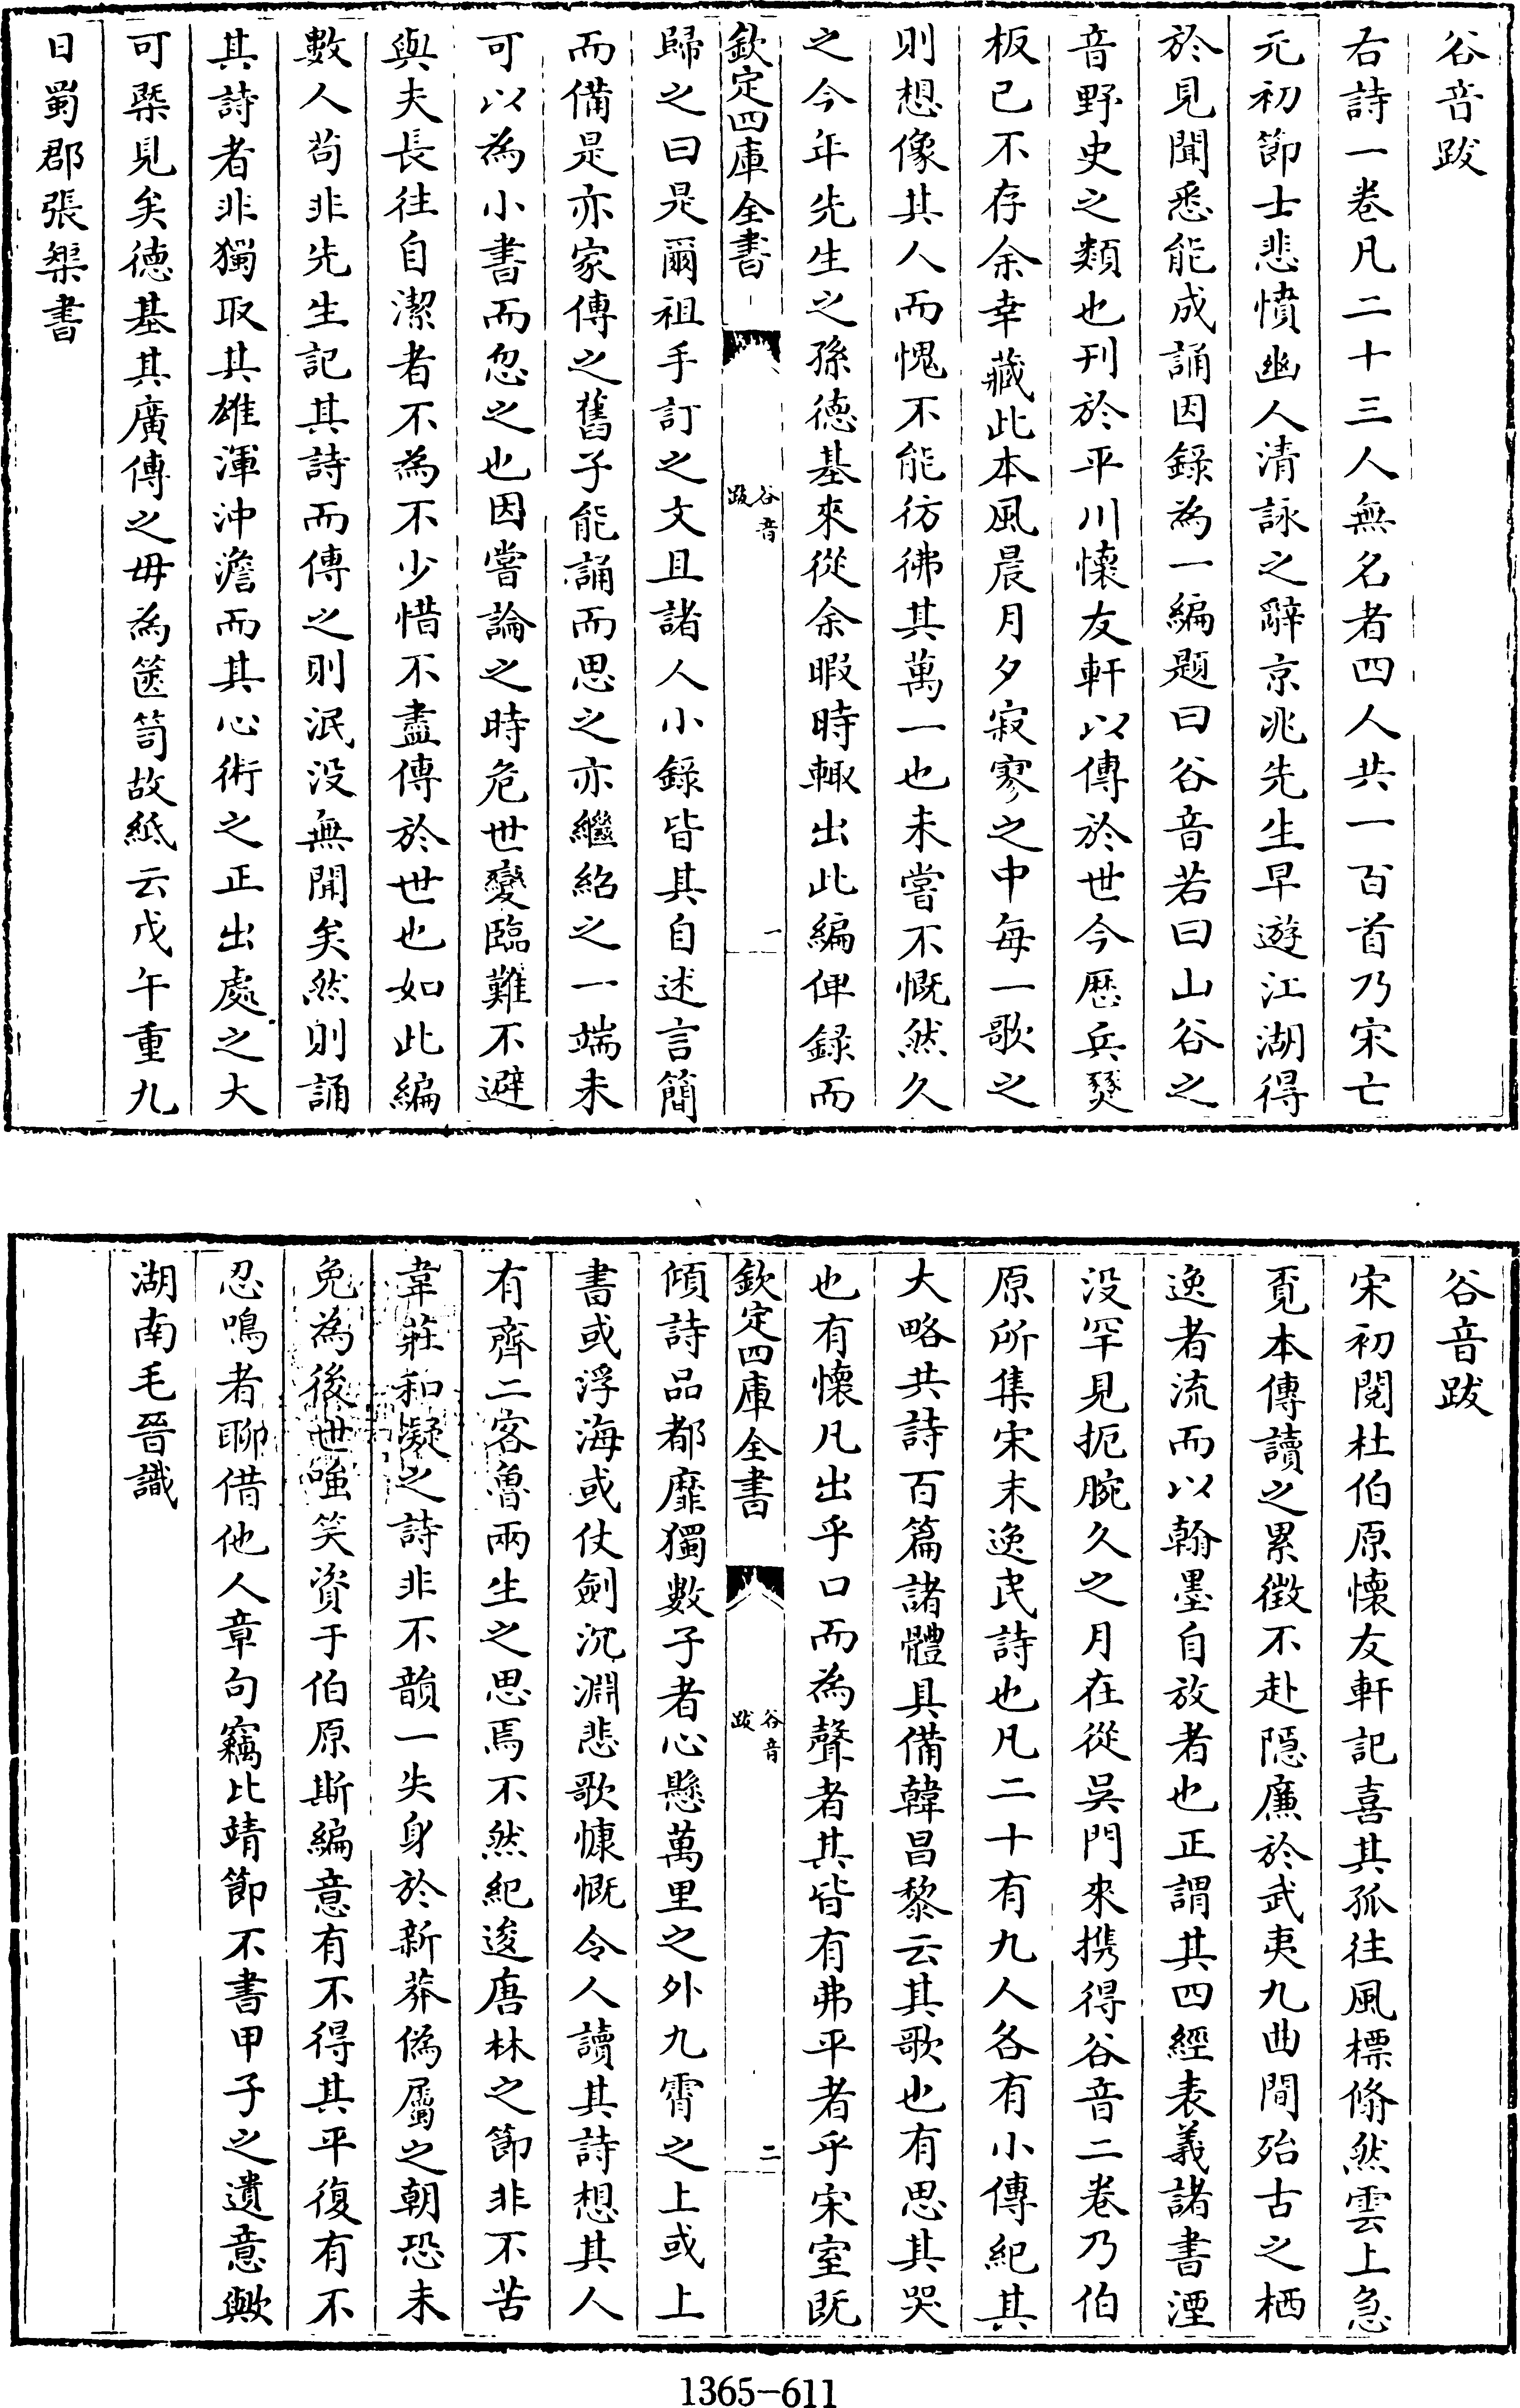 谷音跋
右詩一卷凡二十三人無名者四人共一百首乃宋亡
元初節士悲憤幽人清詠之辭京兆先生早遊江湖得
於見聞悉能成誦因錄為一編題曰谷音若曰山谷之
音野史之類也刋於平川懷友軒以傳於世今歷兵燹
板已不存余幸藏此本風晨月夕寂寥之中每一歌之
則想像其人而愧不能彷彿其萬一也未嘗不慨然久
之今年先生之孫徳基來從余暇時輙出此編俾録而
欽定四庫全書
谷音
跋
一
歸之曰是爾祖手訂之文且諸人小錄皆其自述言簡
而備是亦家傳之舊子能誦而思之亦繼紹之一端未
可以為小書而忽之也因嘗論之時危世變臨難不避
與夫長往自潔者不為不少惜不盡傳於世也如此編
數人茍非先生記其詩而傳之則泯没無聞矣然則誦
其詩者非獨取其雄渾沖澹而其心術之正出處之大
可槩見矣徳基其廣傳之毋為篋笥故紙云戊午重九
日蜀郡張榘書
谷音跋
宋初閱杜伯原懷友軒記喜其孤往風標翛然雲上急
覓本傳讀之累徴不赴隠廉於武夷九曲間殆古之栖
逸者流而以翰墨自放者也正謂其四經表義諸書湮
没罕見扼腕久之月在從吳門來携得谷音二卷乃伯
原所集宋末逸民詩也凡二十有九人各有小傳紀其
大略共詩百篇諸體具備韓昌黎云其歌也有思其哭
也有懷凡出乎口而為聲者其皆有弗平者乎宋室既
欽定四庫全書
谷音
跋
二
傾詩品都靡獨數子者心懸萬里之外九霄之上或上
書或浮海或仗劍沉淵悲歌慷慨令人讀其詩想其人
有齊二客魯兩生之思焉不然紀逡唐林之節非不苦
韋莊和凝之詩非不韻一失身於新莽偽屬之朝恐未
免為後世嗤笑資于伯原斯編意有不得其平復有不
忍鳴者聊借他人章句竊比靖節不書甲子之遺意歟
湖南毛晉識
1365-611